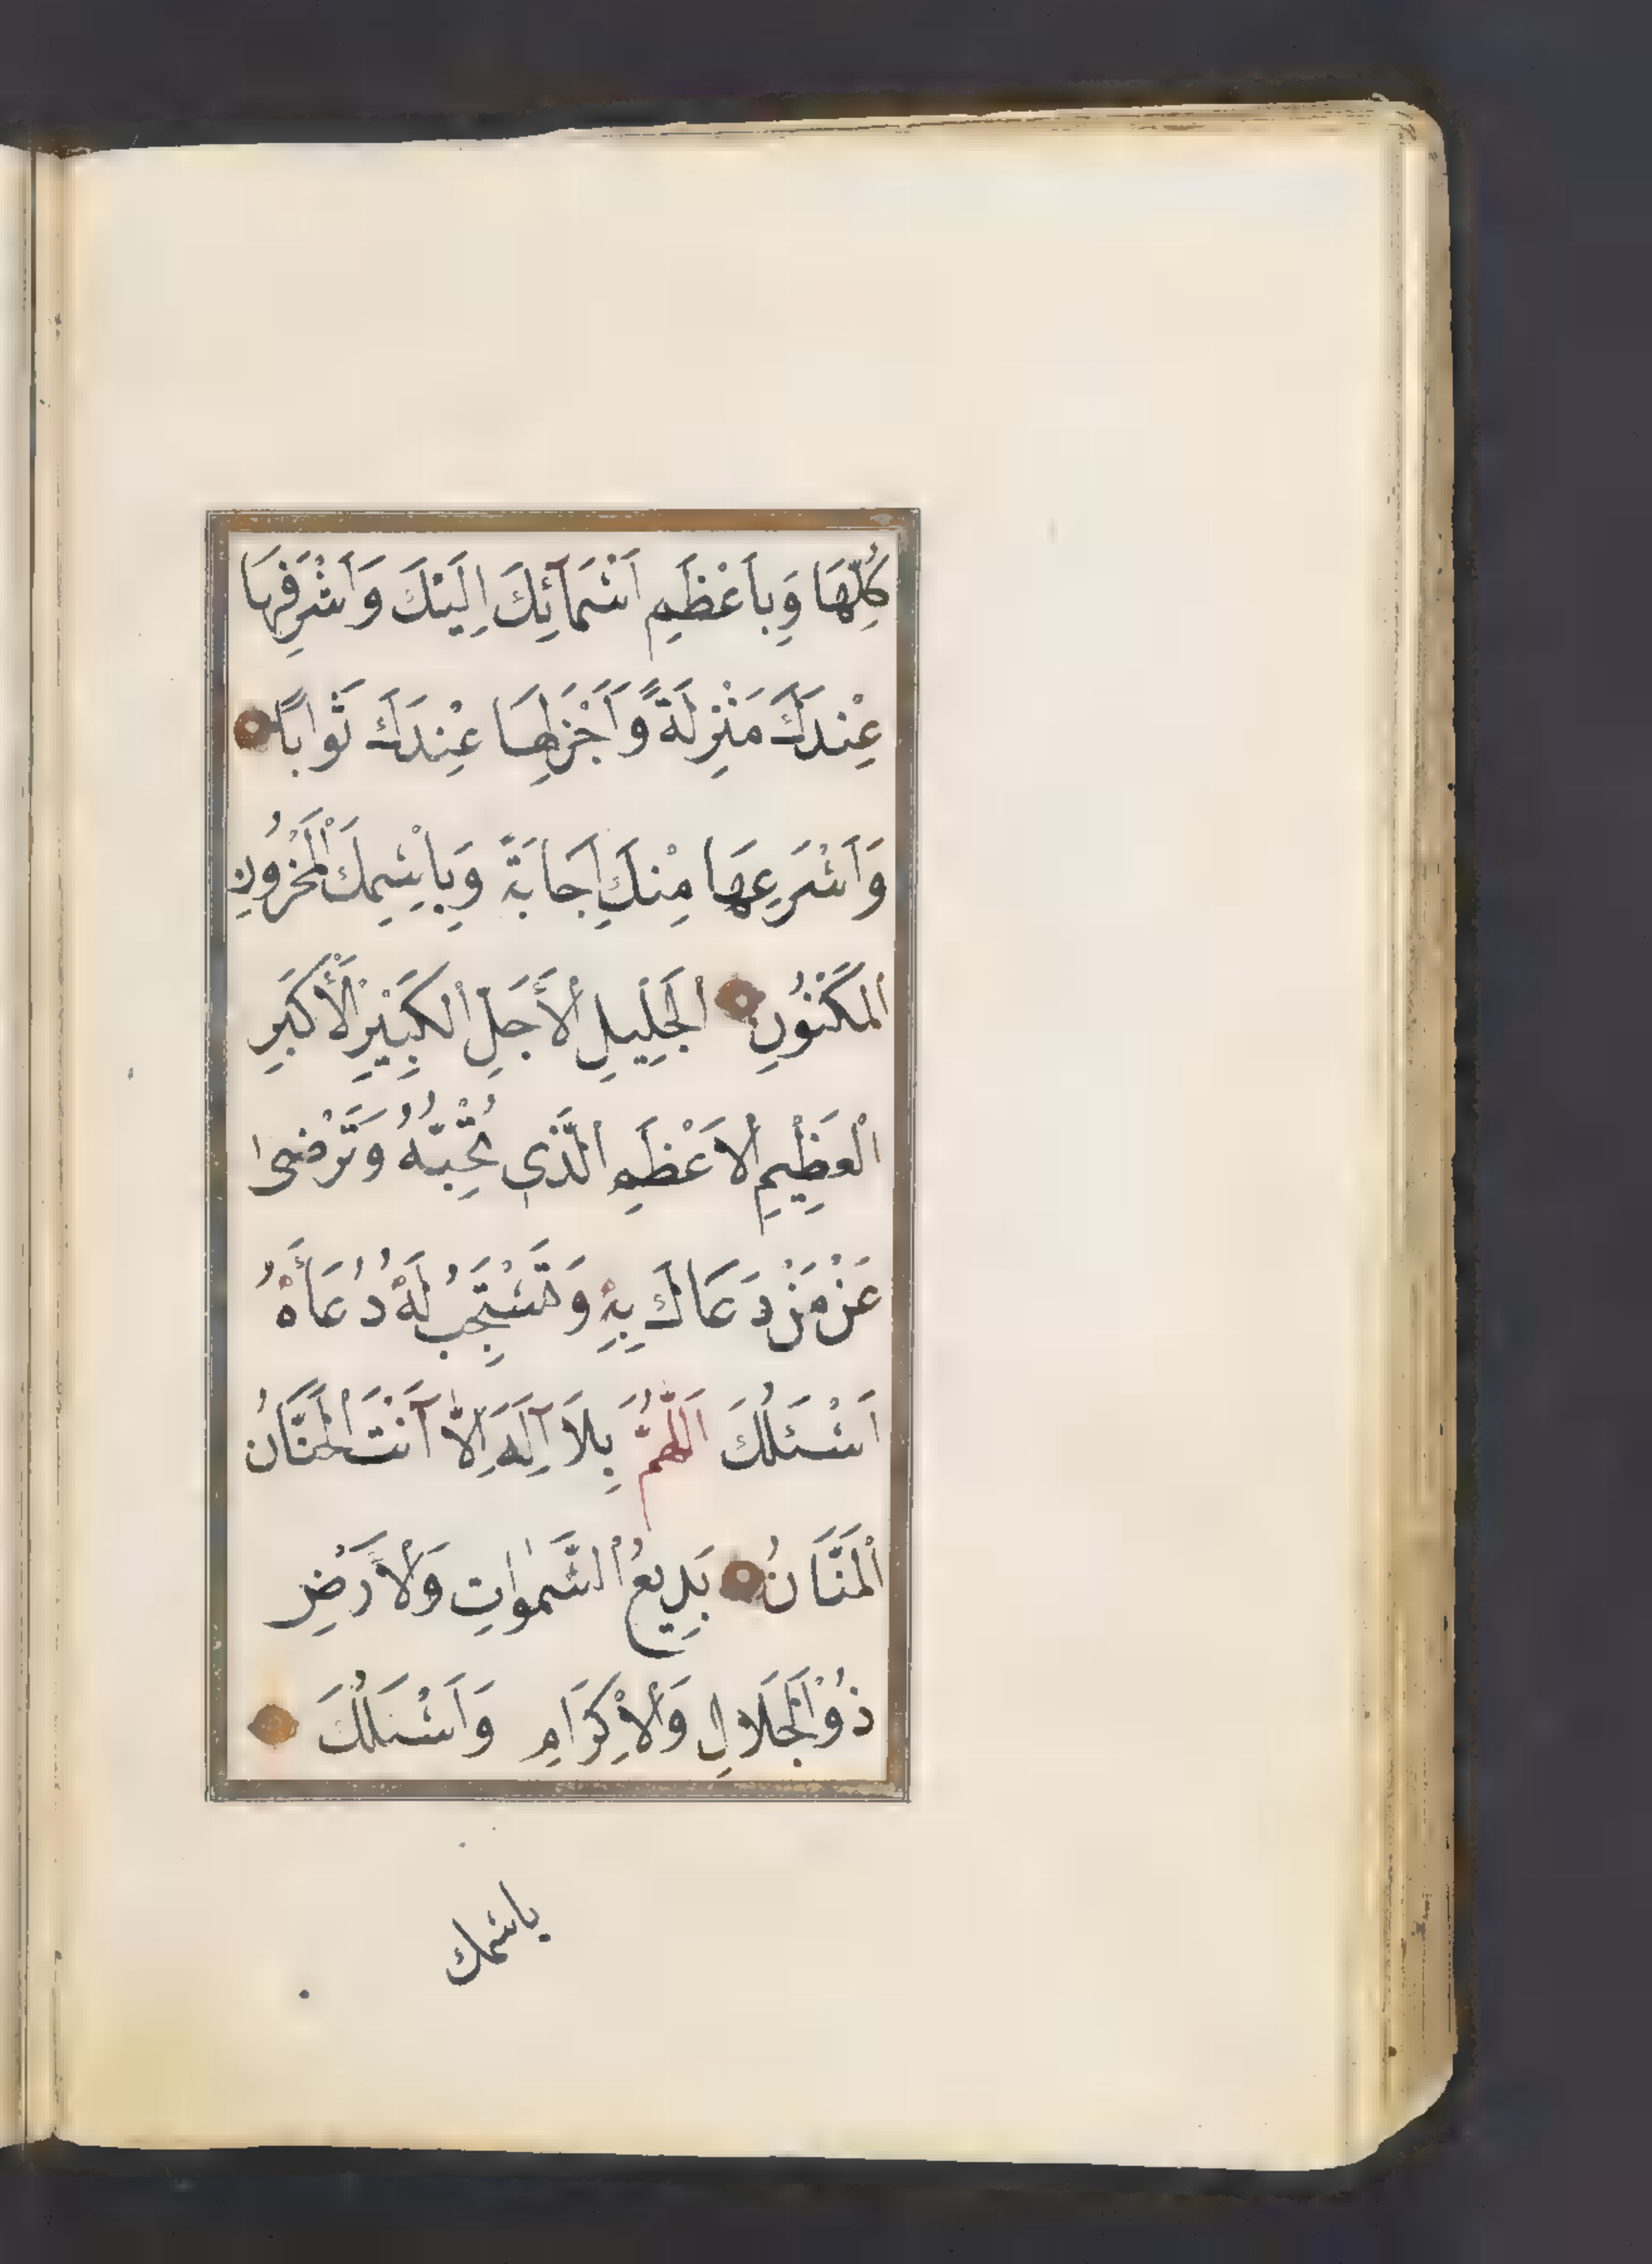 كُلِّهَا وَبِاَعْظَمِ اَسْمَآئِكَ اِلَيْكَ وَاَشْرَفِهَا
عِنْدَكَ مَنْزِلَةً وَاَجْزَلِهَا عِنْدَكَ ثَوَابًا
وَاَسْرَعِهَا مِنْكَ اِجَابَةً وَبِاسْمِكَ الْمَخْزُونِ
الْمَكْنُونِ الْجَلِيلِ الْأَجَلِّ الْكَبِيْرِ الْأَكْبَرِ
الْعَظِيْمِ الْاَعْظَمِ الَّذِي تُحِبُّهُ وَتَرْضٰى
عَنْ مَنْ دَعَاكَ بِهِ وَتَسْتَجِبُ لَهُ دُعَأَهُ
اَسْئَلُكَ اَللّٰهُمَّ بِلَا آلِهَ اِلَّا آنْتَ الْحَنَّانُ
الْمَنَّانُ بَدِيعُ السَّمٰوَاتِ وَالْأَرْضِ
ذُوْ الْجَلَالِ وَالْأِكْرَامِ وَاَسْئَلُكَ
باسمك